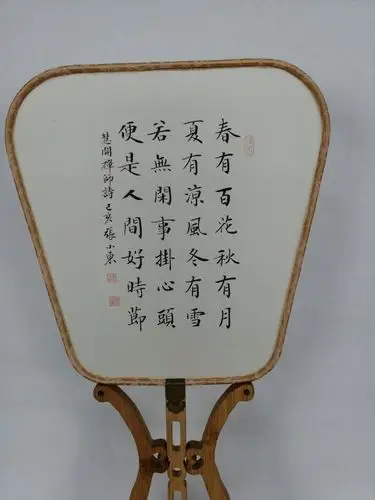 春有百花秋有月
夏有涼風冬有雪
若無閑事掛心頭
便是人間好時節
慧開禪師詩己亥張小東